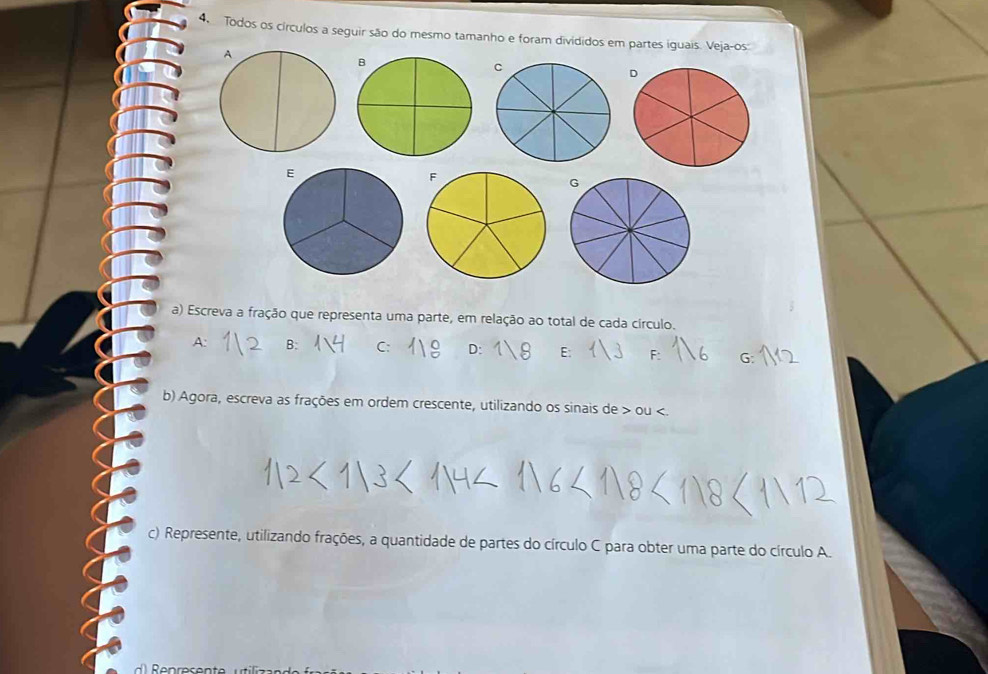 4. Todos os círculos a seguir são do mesmo tamanho e foram divididos em partes iguais. Veja-os:
A B C D
E F G
a) Escreva a fração que representa uma parte, em relação ao total de cada círculo.
A: 1\2 B: 1\4 C: 1\8 D: 1\8 E: 1\3 F: 1\6 G: 1\12
b) Agora, escreva as frações em ordem crescente, utilizando os sinais de > ou <.
1\2 < 1\3 < 1\4 < 1\6 < 1\8 < 1\8 < 1\12
c) Represente, utilizando frações, a quantidade de partes do círculo C para obter uma parte do círculo A.
d) Represente, utilizando